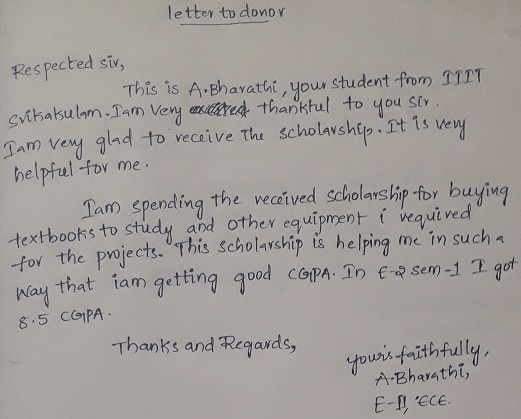 letter to donor
Respected sir,
This is A.Bharathi, your student from IIIT
Srikakulam. Iam very thankful to you sir.
Iam very glad to receive The scholarship. It is very
helpful for me.
Iam spending the received scholarship for buying
textbooks to study and other equipment i required
for the projects. This scholarship is helping me in such a
way that iam getting good CGPA. In E-2 sem-1 I got
8.5 CGPA.
Thanks and Regards,
your's faithfully,
A.Bharathi,
E-II, ECE.